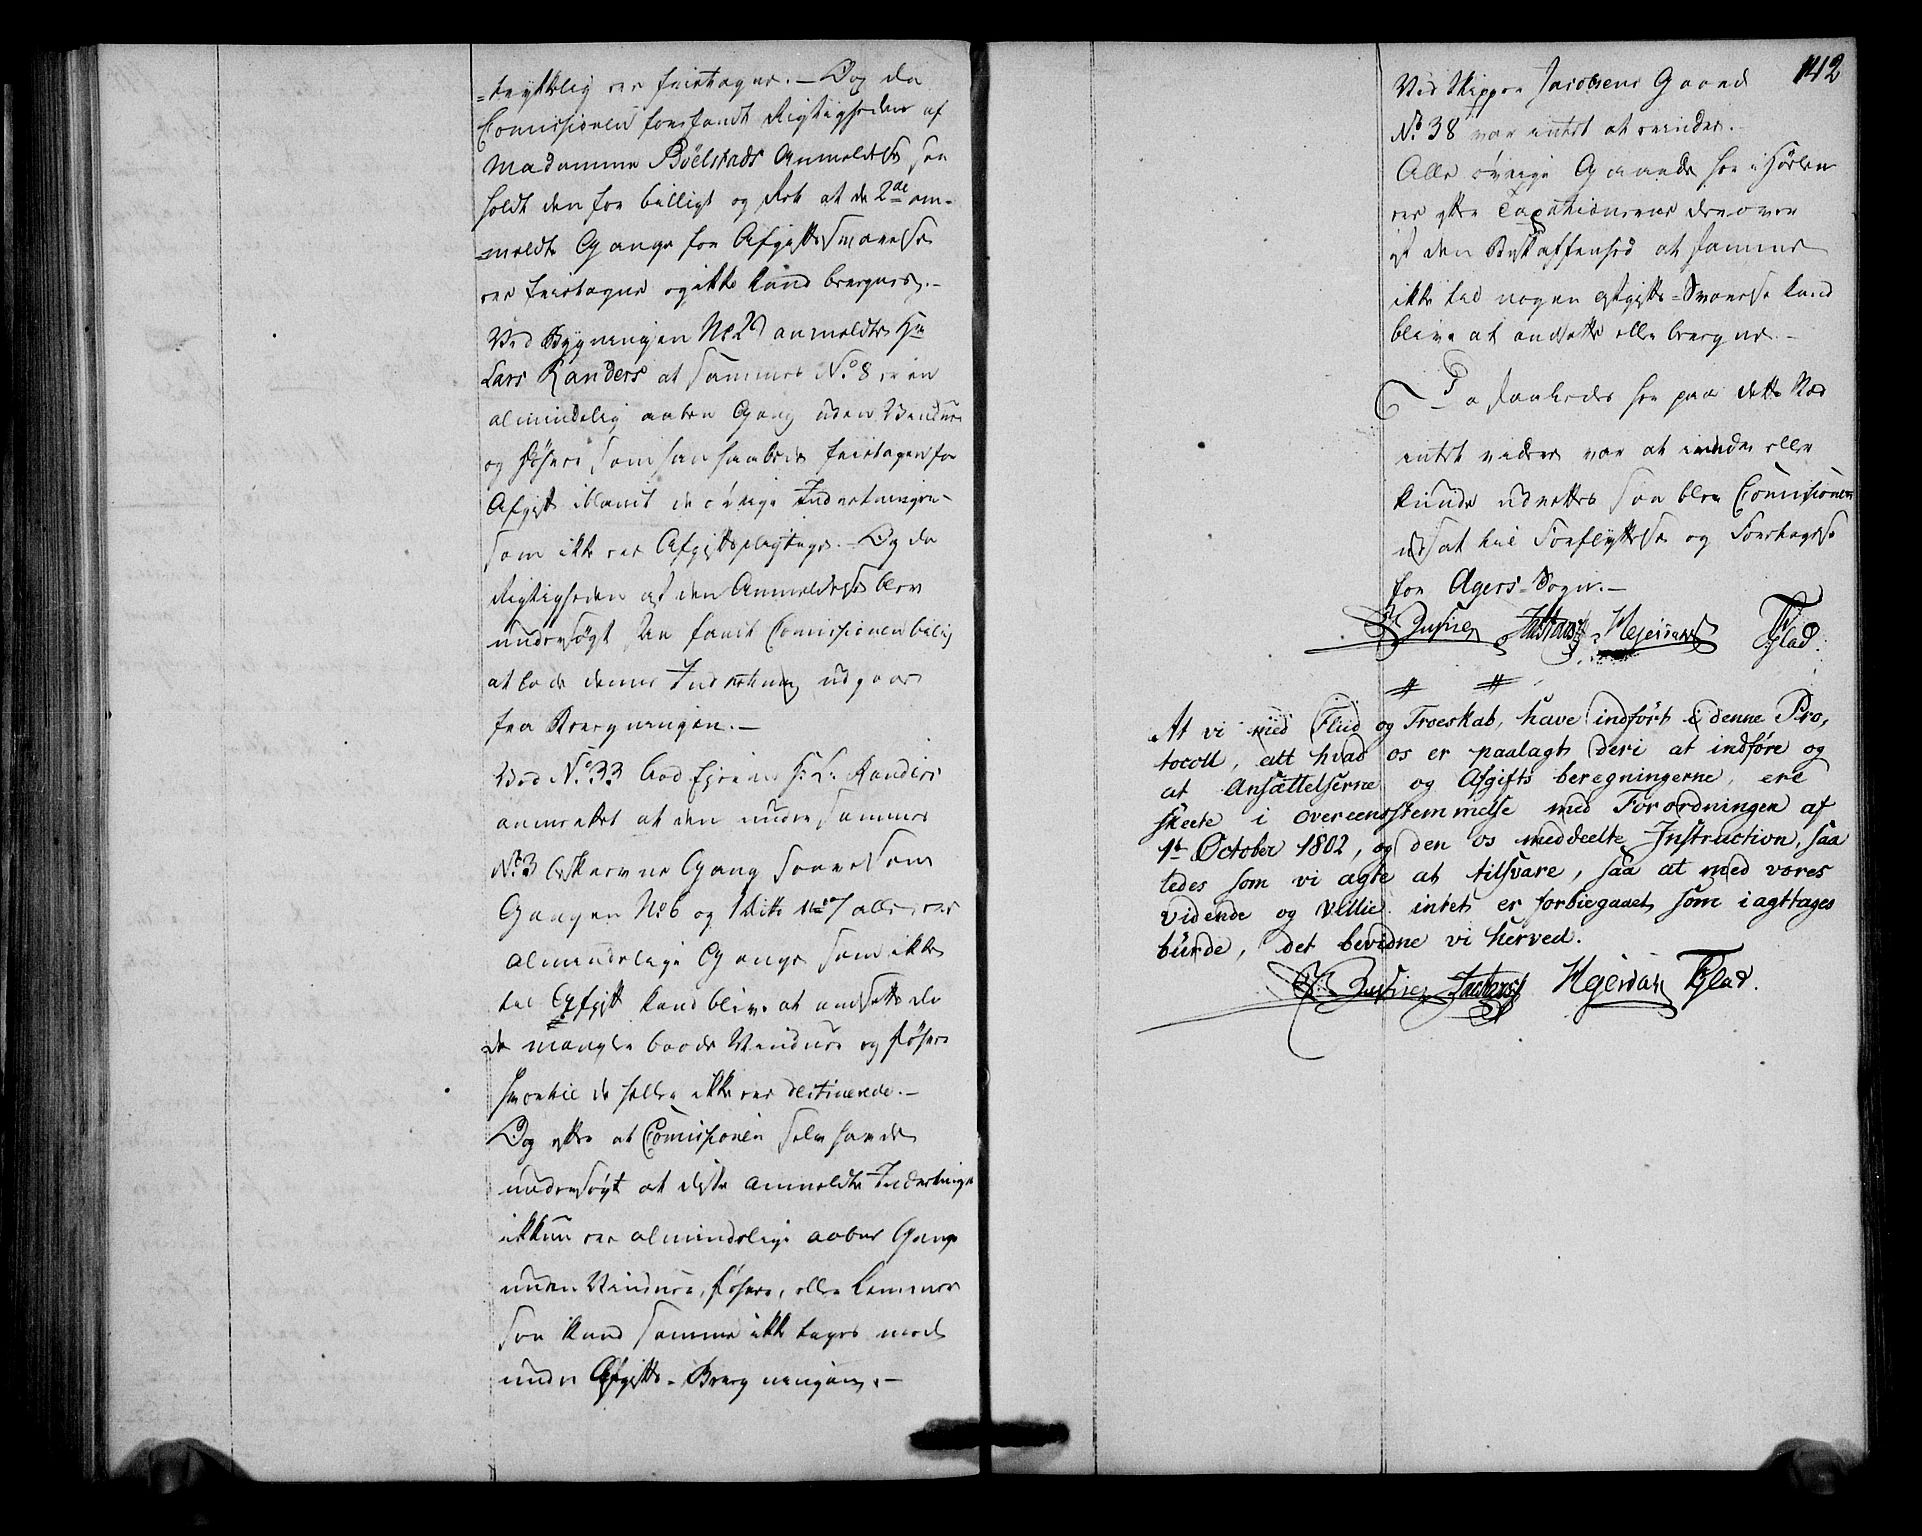 =trykkelig ere fritagne. — Og da
Comissionen forefandt Rigtigheden af
Madamme Böelstads Anmeldelse saa
holdt den for billigt og Ret at de 2de an-
=meldte Gange for Afgifts svarelse
ere fritagne og ikke kand beregnes. —
Ved Bygningen No 29 anmeldte Hr
Lars Randers at sammes No 8 er en
almindelig aaben Gang uden Vinduer
og som han haabede fritagen for
Afgift iblant de øvrige Indretninger
som ikke ere Afgiftspligtige. — Og da
Rigtigheden af den Anmeldelse blev
undersøgt saa fandt Comissionen billig
at lade denne Indretning udgaae
fra Beregningen. —
Ved No 33 L. Randers
anmerket at den under sammes
No 3 Gang saavelsom
Gangen No 6 og 1 Ditto No 7 alle ere
almindelige Gange som ikke
til Afgift kand blive at ansette da
de mangler baade Vinduer og
hvortil de heller ikke ere destinerede. —
Og efter at Comissionen selv havde
undersøgt at disse anmeldte Indretninger
ikkun ere almindelige aabne Gange
uden Vinduer, eller
saa kand samme ikke tages med
under Afgifts-Beregningen. —
142
Ved Skipper Jacobsens Gaard
No 38 var intet at erindre. —
Alle øvrige Gaarde her i
ere efter Taxationerne derover
af den Beskaffenhed at samme
ikke til nogen Afgifts-Svarelse kand
blive at ansette eller beregne. —
Da saaledes her paa dette Sted
intet videre var at erindre eller
kunde udrettes saa blev Comissionen
udsat til Forflyttelse og Foretagelse
for Agers-Sogn. —
Hejerdahl TGlad.
At vi med Fliid og Troeskab, have indført i denne Pro,
tocoll, alt hvad os er paalagt deri at indføre og
at Ansættelserne og Afgifts beregningerne, ere
skeete i overeensstemmelse med Forordningen af
1te October 1802, og den os meddeelte Instruction, saa
ledes som vi agte at tilsvare, saa at med vores
vidende og Villie intet er forbiegaaet som iagttages
burde, det bevidne vi herved.
Hejerdahl TGlad.